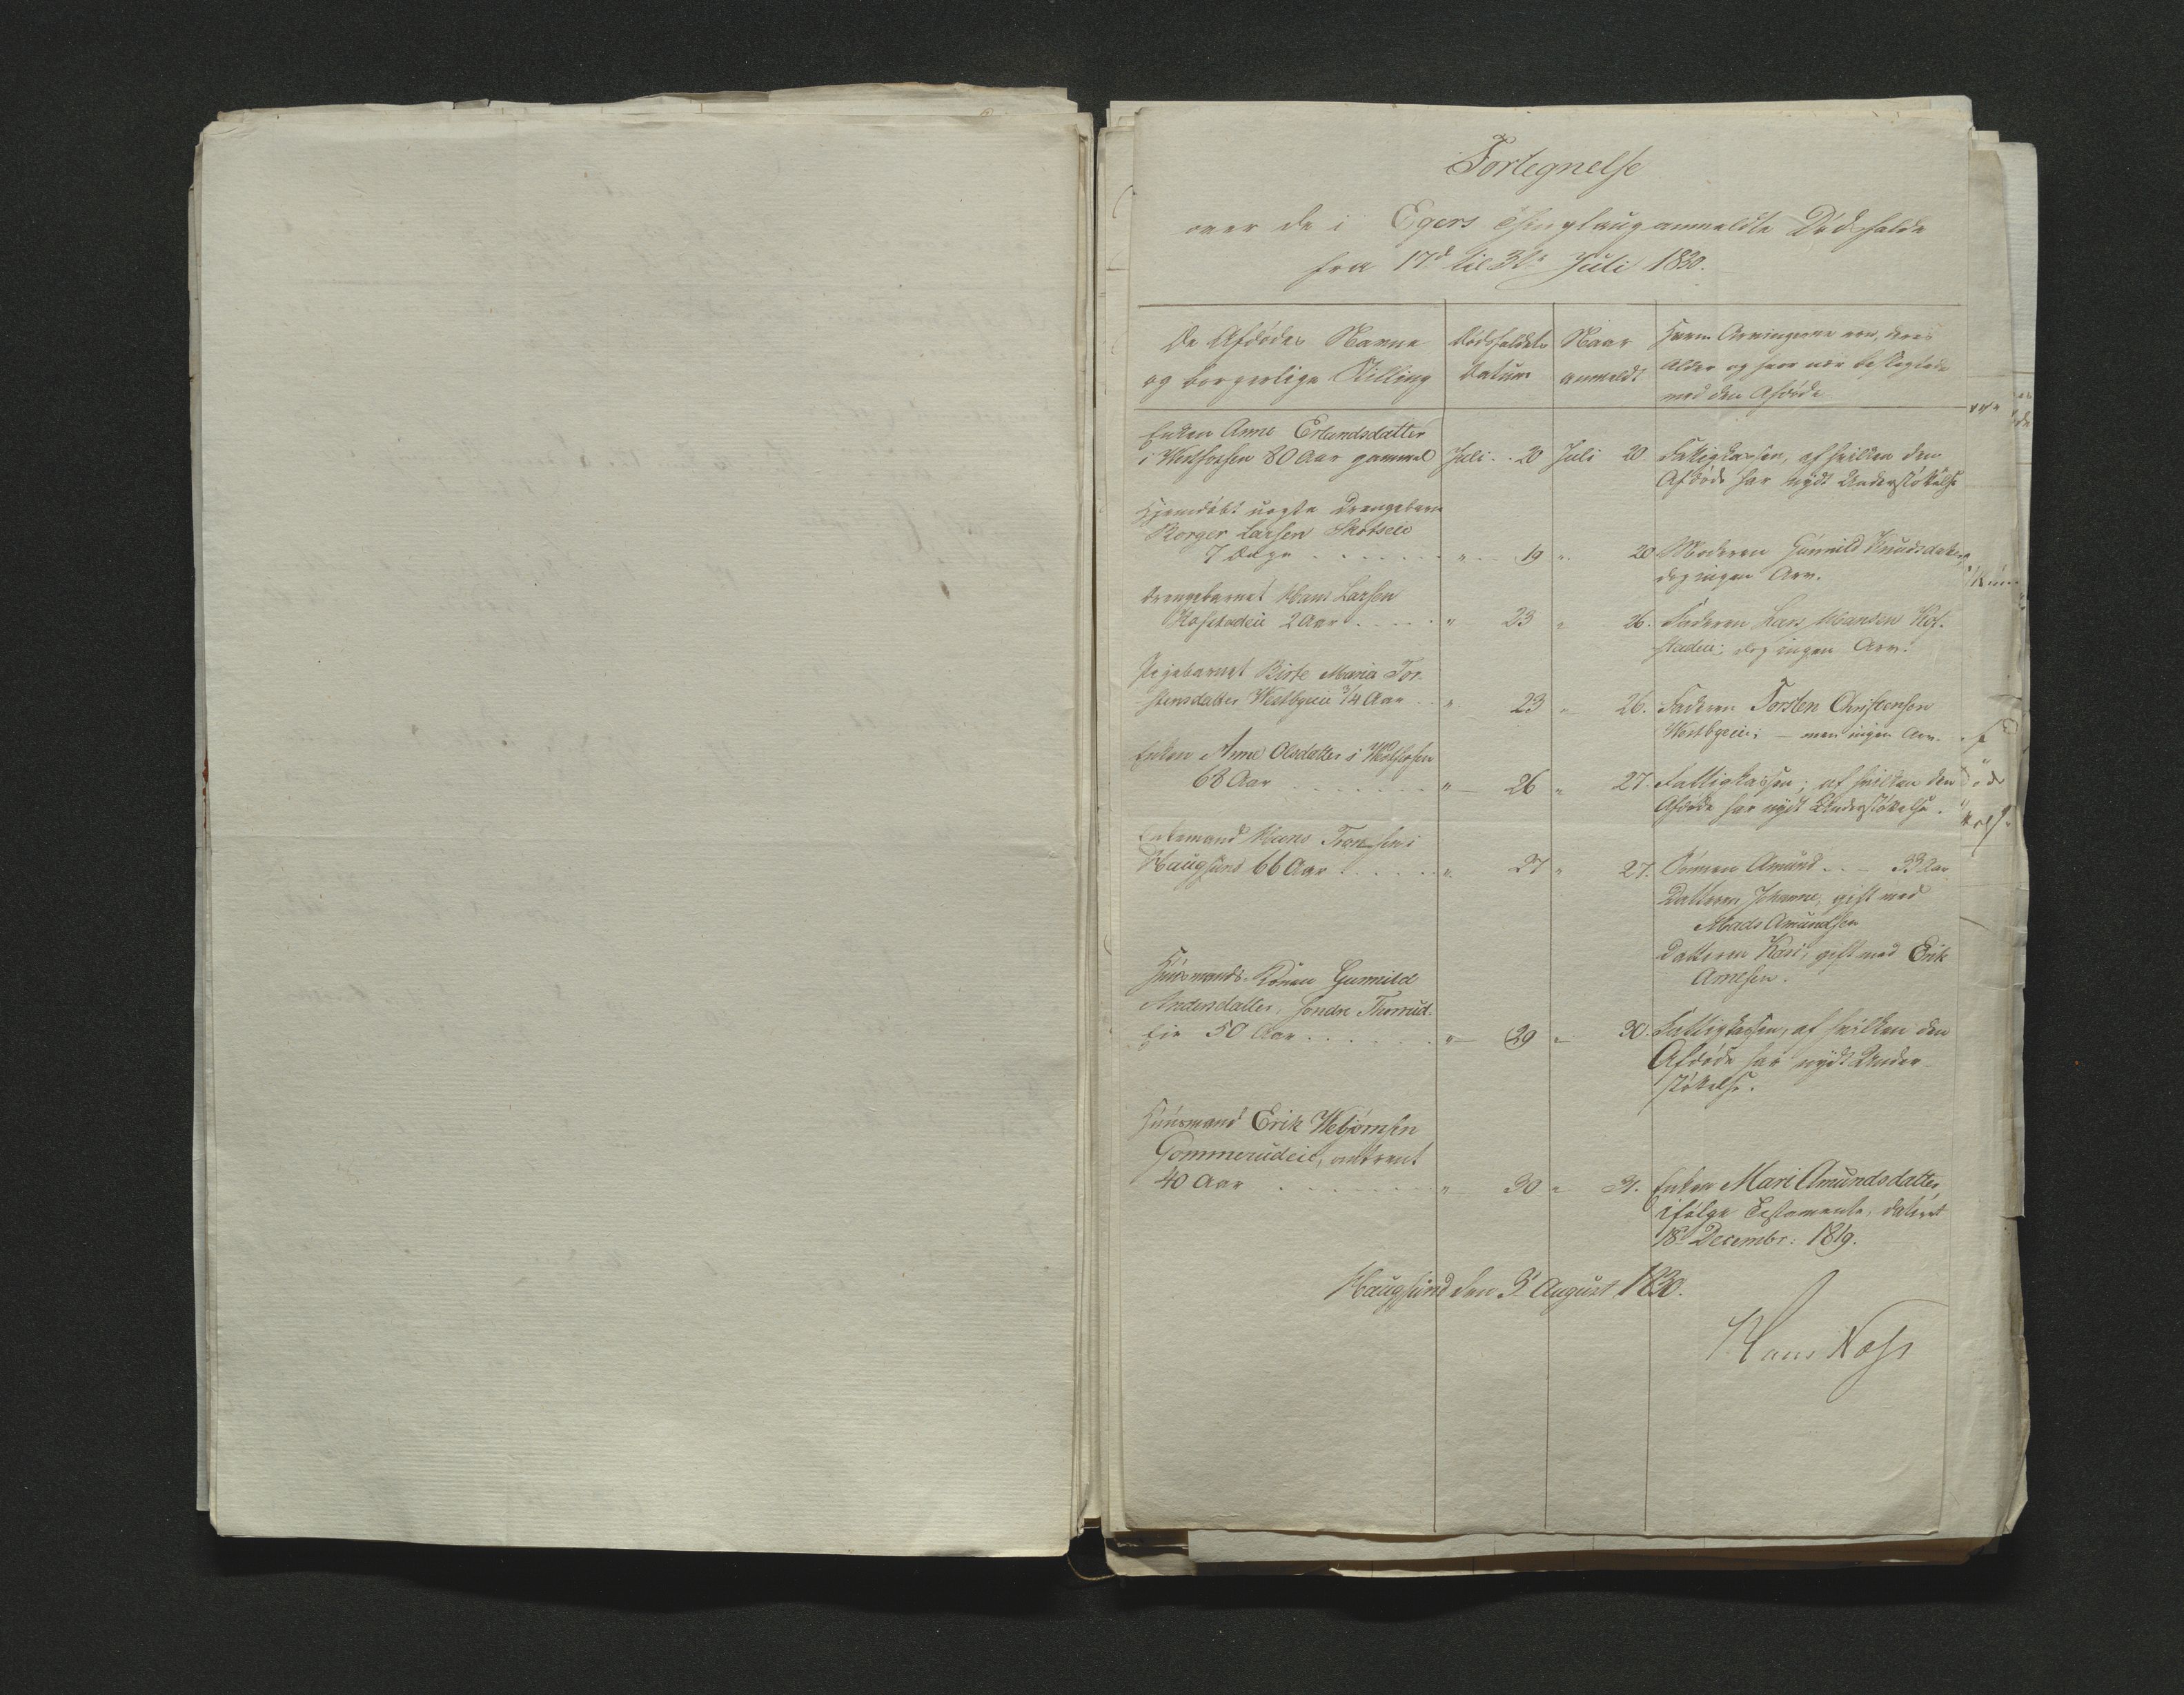 Fortegnelse
over de i Egers Thinglaug anmeldte Dødsfalde
fra 17d til 31te Juli 1830.
De Afdødes Navne
og borgerlige Stilling
Dødsfaldets
Datum
Naar
anmeldt
Hvem Arvingerne ere, deres
Alder og hvor nær beslegtede
med den Afdøde
Enken Anne Erlandsdatter
i Westfossen 80 Aar gammel Juli .. 20 Juli 20. Fattigkassen, af hvilken den
Afdøde har nydt Understøttelse
Hjemdøbt uægte Drengebarn
Borger Larsen Skotseie
7 Dage " 19 " 20 Moderen Gunnild Knudsdatter,
dog ingen Arv.
Drengebarnet Hans Larsen
Hofstadeie 2 Aar " 23 " 26. Faderen Lars Hansen Hof-
stadeie; dog ingen Arv.
Pigebarnet Birte Maria Tor-
stensdatter Westbyeie 3/4 Aar " 23 " 26. Faderen Torsten Christensen
Westbyeie; — men ingen Arv.
Enken Anne Olsdatter i Westfossen
68 Aar " 26 " 27. Fattigkassen; af hvilken den
Afdøde har nydt Understøttelse.
Enkemand Hans
Haugsund 66 Aar " 27 " 27. Sønnen Amund .. — 33 Aar
Datteren Johanne, gift med
Mads Amundsen
Datteren Kari, gift med Erik
Arnesen.
Huusmands-Konen Gunnild
Andersdatter, søndre
Eie 50 Aar " 29 " 30. Fattigkassen, af hvilken den
Afdøde har nydt Under-
støttelse.
Huusmand Erik Webjørnsen
Gommerudeie, omtrent
40 Aar " 30 " 31. Enken Mari Amundsdatter,
ifølge Testamente, dateret
18d Decembr. 1819.
Haugsund den 3d August 1830.
Hans